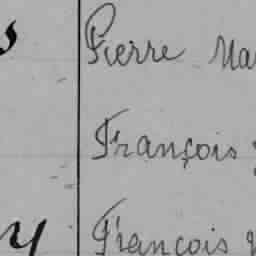 s Pierre Ma
François
y François